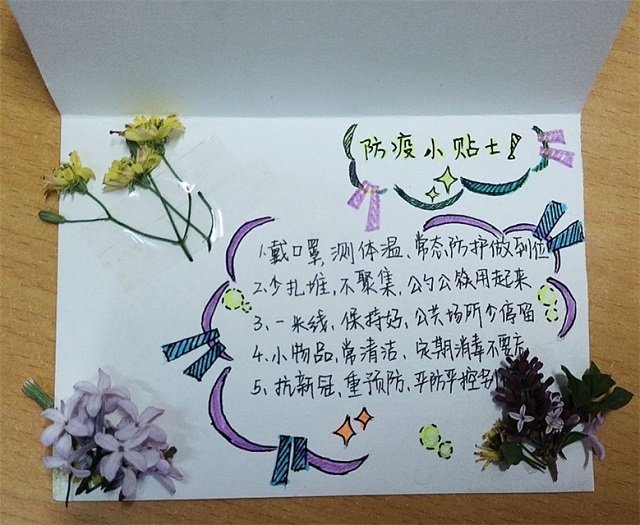 防疫小贴士!
1.戴口罩,测体温、常态防护做到位
2.少扎堆,不聚集,公勺公筷用起来
3、一米线、保持好,公共场所少停留
4.小物品,常清洁、定期消毒不要忘
5、抗新冠,重预防、严防严控